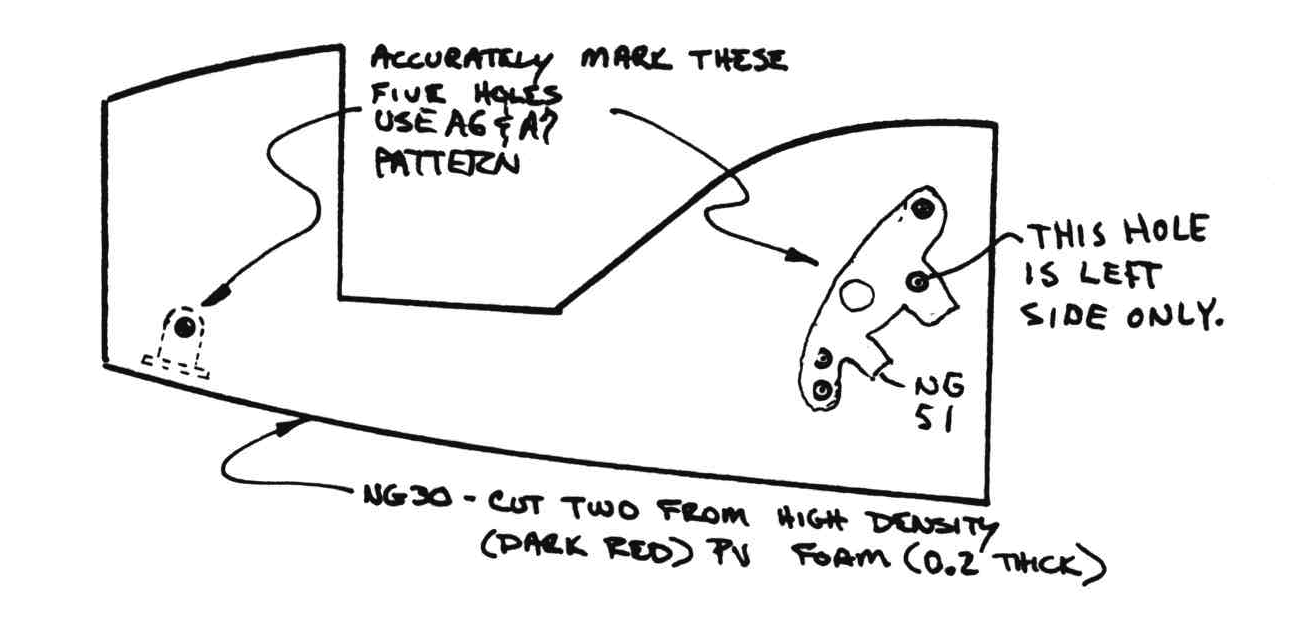 ACCURATELY MARK THESE
FIVE HOLES
USE A6 & A7
PATTERN
THIS HOLE
IS LEFT
SIDE ONLY.
NG
51
NG30 - CUT TWO FROM HIGH DENSITY
(DARK RED) PV FOAM (0.2 THICK)